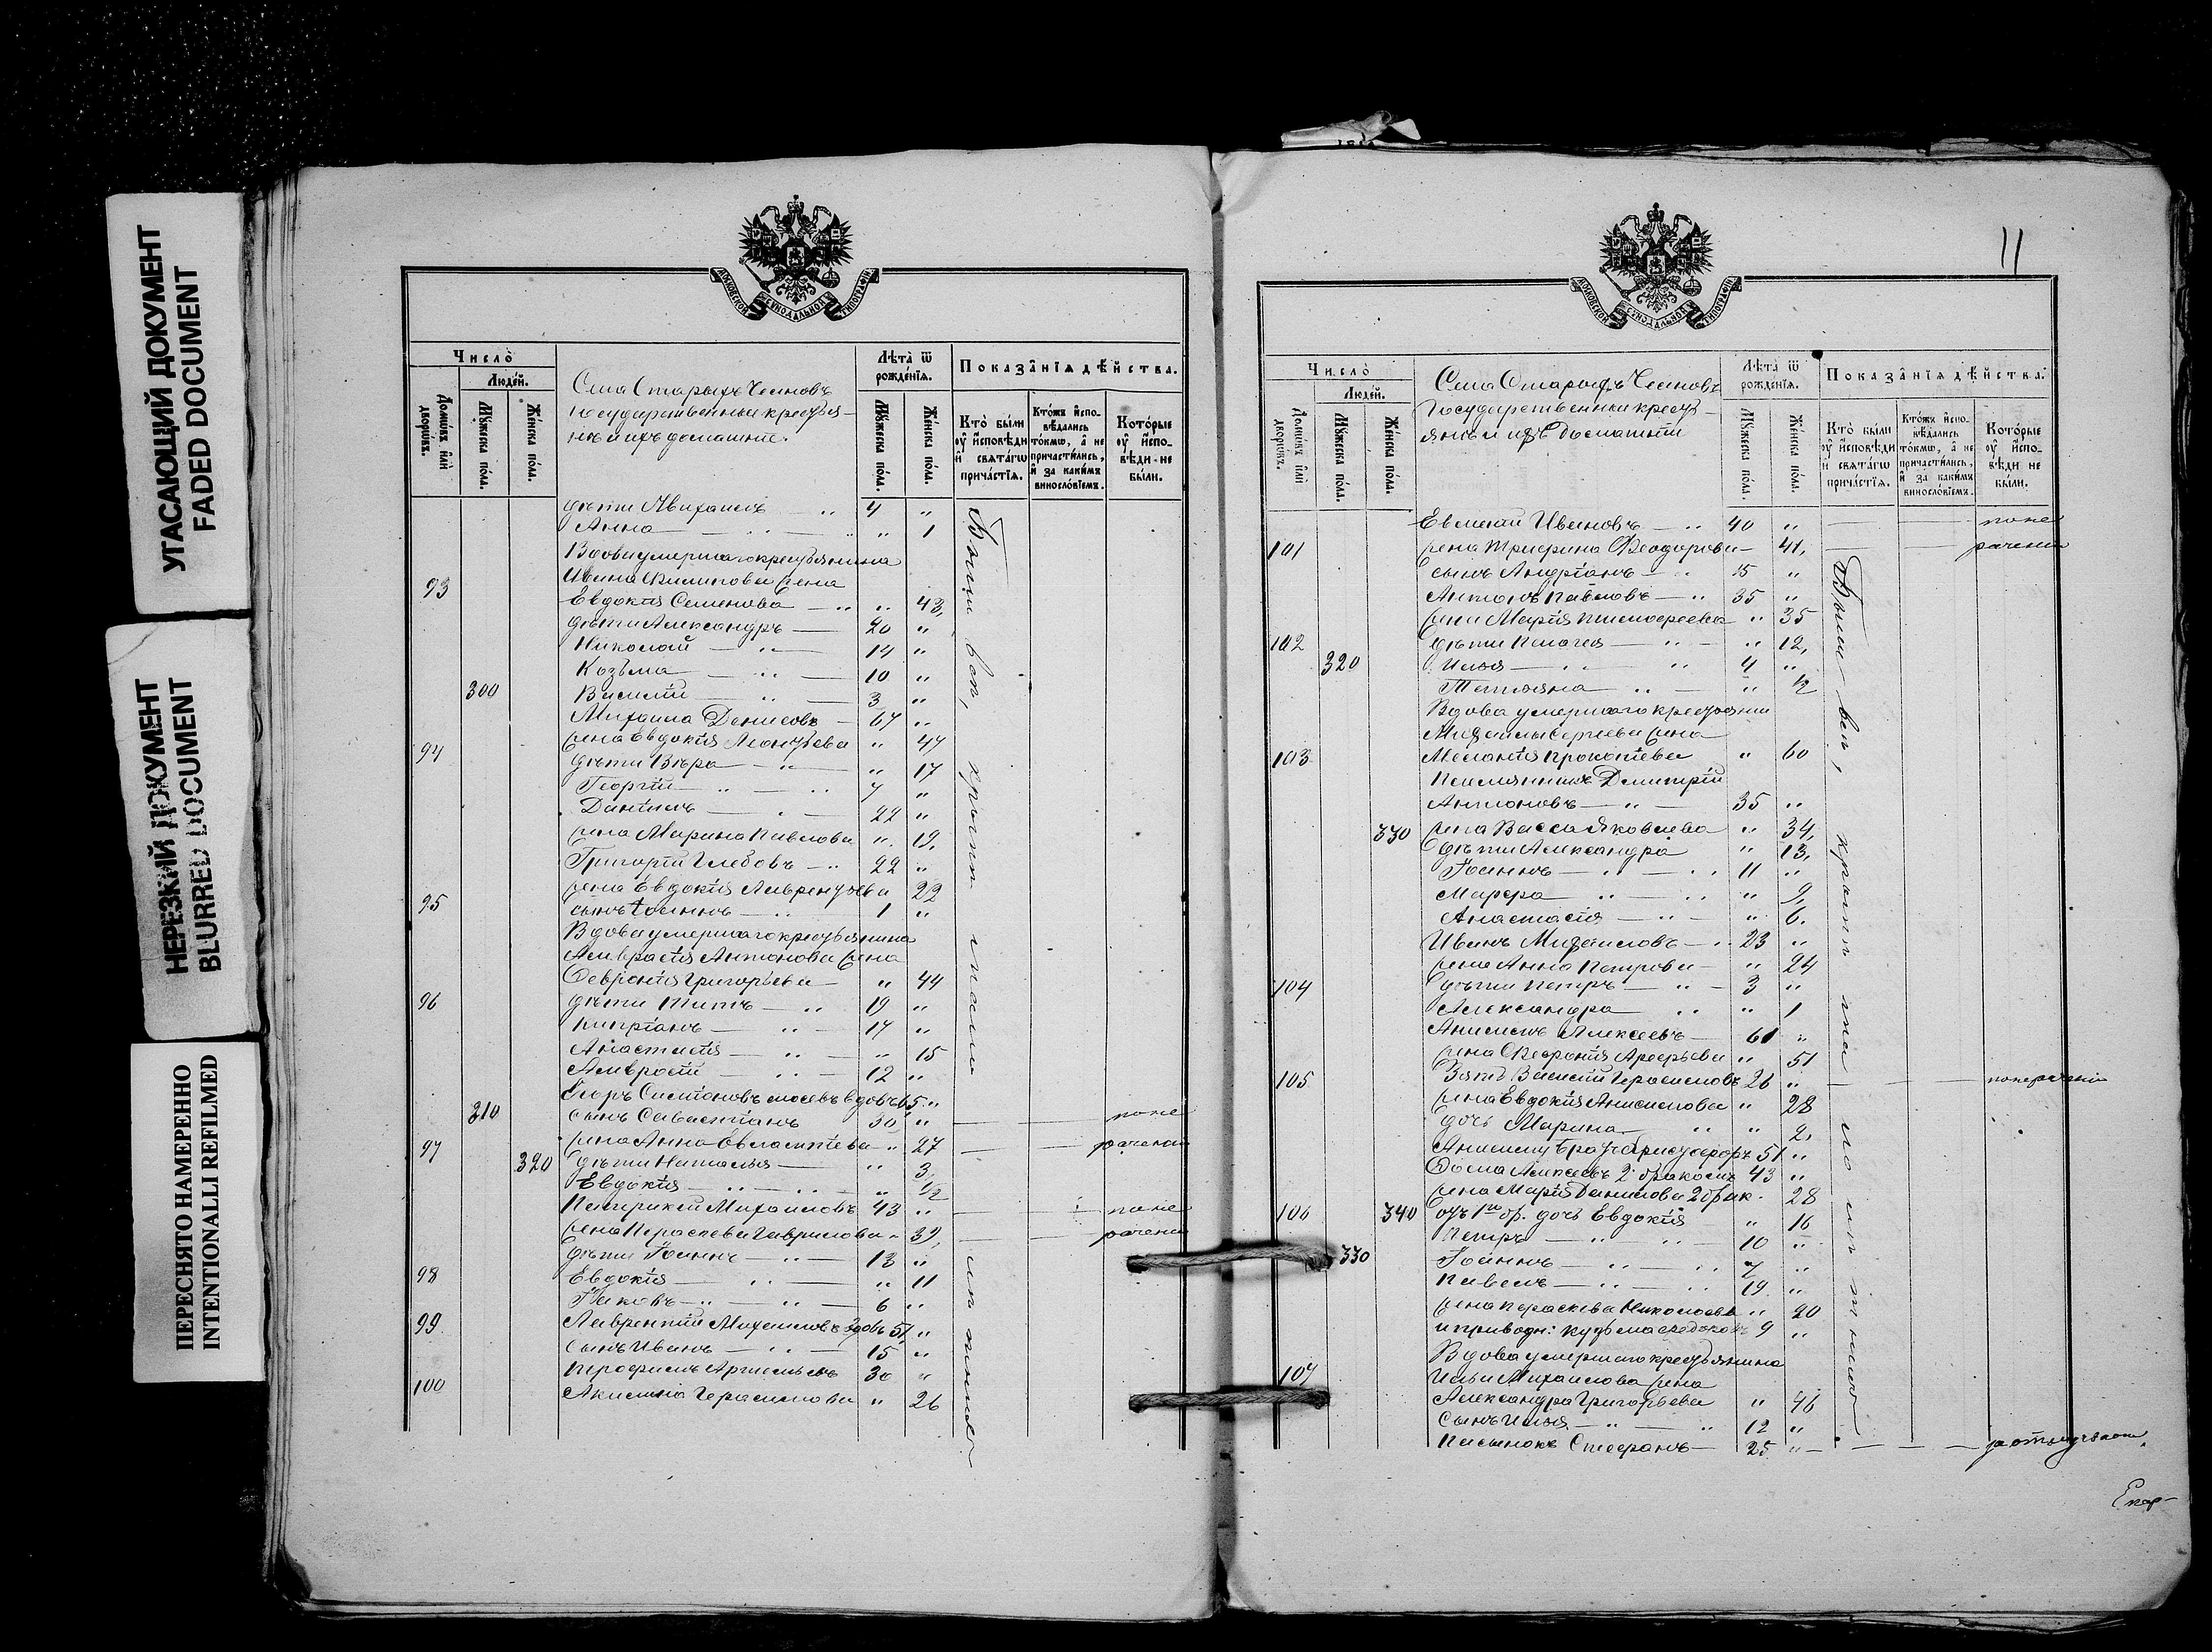 УГАСАЮЩИЙ ДОКУМЕНТ
FADED DOCUMENT
НЕРЕЗКИЙ ДОКУМЕНТ
BLURRED DOCUMENT
ПЕРЕСНЯТО НАМЕРЕННО
INTENTIONALLI REFILMED
МОСКОВСКОЙ СѴНОДАЛЬНОЙ ТИПОГРАФІИ
Число̀
Люде́й.
Домѡ́въ и҆лѝ дворѡ́въ.
Мꙋ́жеска по́ла.
Же́нска по́ла.
Села Старыхъ
Государственныи крестья-
не и ихъ домашніе.
Лѣ́та ѿ рожде́нїѧ.
Мꙋ́жеска по́ла.
Же́нска по́ла.
Показа̑нїѧ дѣ́йства.
Кто̀ бы́ли оу҆ и҆сповѣди и҆ свѧта́гѡ прича́стїѧ.
Кто́жъ и҆спо- вѣдались то́кмѡ, а҆ не причасти́лись, и҆ за каки́мъ винословїемъ.
Кото́рые оу҆ и҆спо- вѣди не бы́ли.
дѣти Михаилъ — 4 „
Анна — „ 1
Вдова умершаго крестьянина
93 Ивана Филипова жена
Евдокия Семенова — „ 43
дѣти Александръ — 20 „
Николай — 14 „
Козьма — 10 „
300 Василій — 3 „
Михаила Денисовъ — 67 „
94 жена Евдокія Леонтьева „ 47
дѣти Вѣра — „ 17
Георгій — 7 „
Даніилъ — 22 „
жена Марина Павлова „ 19
Григорій Глебовъ — 22 „
жена Евдокія Лаврентьева 22
95 сынъ Іоаннъ — 1 „
Вдова умершаго крестьянина
Амвросія Антонова жена
Февронія Григорьева — „ 44
96 дѣти Титъ — 19 „
Кипріанъ — 17 „
Анастасія — „ 15
Амвросій — 12 „
Егоръ Симіоновъ вдовъ 65 „
310 сынъ Савастіанъ 30 „ — — поне
97 жена Анна „ 27 — — рачению
320 дѣти Наталья — „ 3
Евдокія — „ 1/2
Патрикей Михайловъ 43 „ — — поне
жена Параскева Гаврилова „ 39 — — рачению
дѣти Іоаннъ — 13 „
98 Евдокія — „ 11
Іаковъ — 6 „
99 Лаврентій Михайловъ вдовъ 51 „
сынъ Иванъ — 15 „
100 Артемьевъ 30 „
Акилина Герасимова „ 26
Были
11
МОСКОВСКОЙ СѴНОДАЛЬНОЙ ТИПОГРАФІИ
Число̀
Люде́й.
Домѡ́въ и҆лѝ дворѡ́въ.
Мꙋ́жеска по́ла.
Же́нска по́ла.
Села Старыхъ
Государственныи кресть-
яне и ихъ домашніи
Лѣ́та ѿ рожде́нїѧ.
Мꙋ́жеска по́ла.
Же́нска по́ла.
Показа̑нїѧ дѣ́йства.
Кто̀ бы́ли оу҆ и҆сповѣди и҆ свѧта́гѡ прича́стїѧ.
Кто́жъ и҆спо- вѣдались то́кмѡ, а҆ не причасти́лись, и҆ за каки́мъ винословїемъ.
Кото́рые оу҆ и҆спо- вѣди не бы́ли.
Ивановъ — 40 „ — — поне
101 жена Феодорова — 41 — — рачению
сынъ Андріанъ — 15 „
Антонъ Павловъ — 35 „
жена Марія Тимофеева „ 35
102 дѣти Пелагея — „ 12
320 Илья — 4 „
Татьяна — „ 1/2
Вдова умершаго крестьянин
Михаилы Сергеева жена
103 Меланія Прокопіева „ 60
Племянникъ Димитрій
Антоновъ — 35 „
330 жена Васса Яковлева „ 34
дѣти Александра „ 13
Іоаннъ — 11 „
Марфа — „ 9
Анастасія — „ 6
Иванъ Михаиловъ — 23 „
жена Анна Петрова — „ 24
104 дѣти Петръ — 3 „
Александра „ 1
Анисимъ Алексеевъ — 61 „
жена Арефьева „ 51
105 Зять Василій Герасимовъ 26 „ — — понерачению
жена Евдокія Анисимова „ 28
дочь Марина — „ 2
Анисиму братъ 51 „
Фома Алексеевъ 2 бракомъ 43 „
жена Марія Данилова 2 брак. 28
106 340 отъ 1го бр. дочь Евдокія „ 16
Петръ — 10 „
330 Іоаннъ — 7 „
Павелъ — 19 „
жена Параскева Николаева „ 20
и приводн: Кузьма 9 „
Вдова умершаго крестьянина
107 Ильи Михайлова жена
Александра Григорьева „ 46
Сынъ Илья — 12 „
Пасынокъ Стефанъ — 25 „ — — — за отлучкою
Были